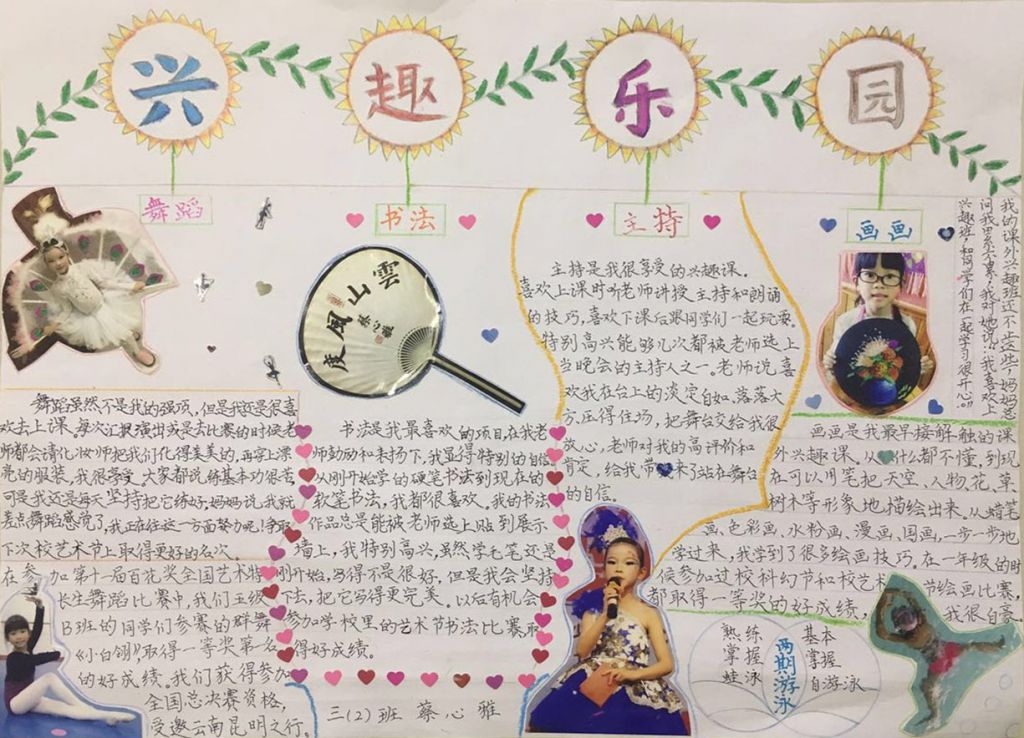 兴趣乐园
舞蹈
舞蹈虽然不是我的强项，但是我还是很喜
欢去上课。每次汇报演出或是去比赛的时候老
师都会请化妆师把我们化得美美的，再穿上漂
亮的服装，我很享受。大家都说练基本功很苦
可是我还是每天坚持把它练好，妈妈说，我就
差点舞蹈感觉了，我正在往这一方面努力呢！争取
下次校艺术节上取得更好的名次。
在参加第十一届百花奖全国艺术特
长生舞蹈比赛中，我们五级
B班的同学们参赛的群舞
《小白翎》，取得一等奖第一名
的好成绩。我们获得参加
全国总决赛资格，
受邀云南昆明之行。
书法
雲山風度
蔡心雅
书法是我最喜欢的项目，在我老
师鼓励和表扬下，我显得特别的自信
从刚开始学的硬笔书法到现在的
软笔书法，我都很喜欢。我的书法
作品总是能被老师选上贴到展示
墙上，我特别高兴，虽然学毛笔还是
刚开始，写得不是很好，但是我会坚持
下去，把它写得更完美。以后有机会
参加学校里的艺术节书法比赛取
得好成绩。
三(2)班 蔡心雅
主持
主持是我很享受的兴趣课。
喜欢上课时听老师讲授主持和朗诵
的技巧，喜欢下课后跟同学们一起玩耍。
特别高兴能够几次都被老师选上
当晚会的主持人之一。老师说，喜
欢我在台上的淡定自如、落落大
方，压得住场，把舞台交给我很
放心，老师对我的高评价和
肯定，给我带来了站在舞台
的自信。
画画
我的课外兴趣班还不止这些，妈妈总
问我累不累？我对她说：“我喜欢上
兴趣班，和同学们在一起学习很开心。”
画画是我最早接触的课
外兴趣课。从什么都不懂，到现
在可以用笔把天空、人物、花、草、
树木等形象地描绘出来。从蜡笔
画、色彩画、水粉画、漫画、国画，一步一步地
学过来，我学到了很多绘画技巧。在一年级的时
候参加过校科幻节和校艺术节绘画比赛，
都取得一等奖的好成绩，我很自豪。
熟练掌握蛙泳
两期游泳
基本掌握自游泳